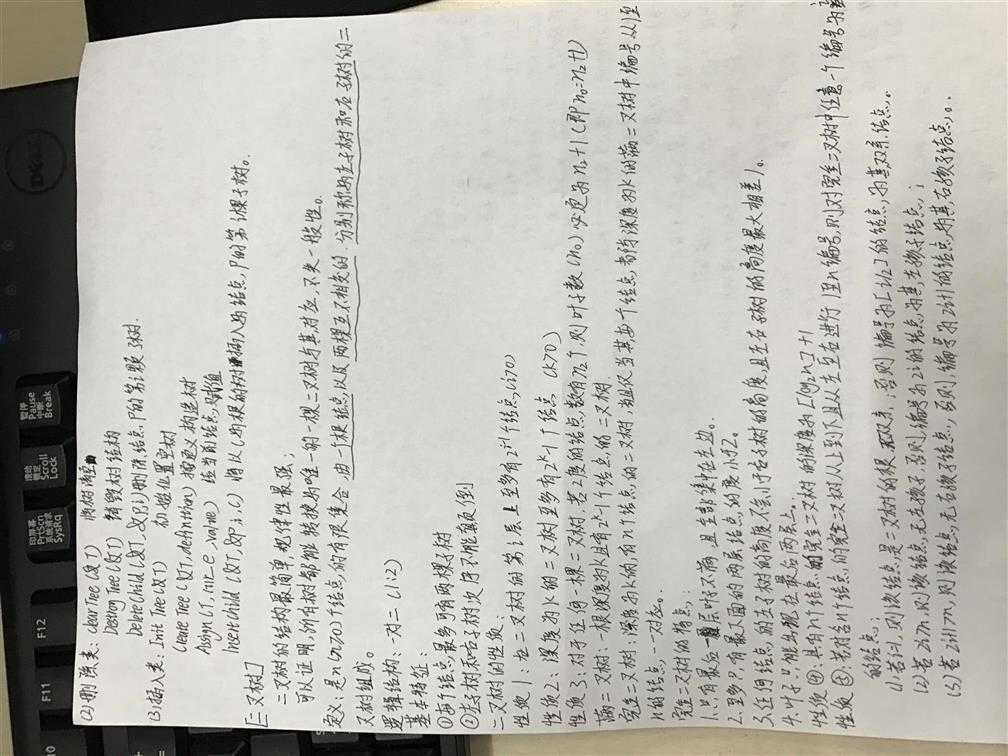 (2)删除类: ClearTree(&T) 将树清空
DestroyTree(&T) 销毁树结构
DeleteChild(&T,&P,i) 删除结点P的第i颗子树.
(3)插入类: InitTree(&T) 初始化置空树
CreateTree(&T,definition) 按定义构造树
Assign(T,cur_e,value) 给当前结点赋值
InsertChild(&T,&P,i,c) 将以c为根的树插入为结点P的第i棵子树。
[二叉树]
二叉树的结构最简单,规律性最强;
可以证明,所有树都能转换为唯一的一棵二叉树与其对应,不失一般性。
定义:是n(n≥0)个结点的有限集合,由一个根结点以及两棵互不相交的、分别称为左子树和右子树的二
叉树组成。
逻辑结构:一对二(1:2)
基本特征:
①每个结点最多可有两棵子树
②左子树和右子树次序不能颠倒
二叉树的性质:
性质1:在二叉树的第i层上至多有2^i-1个结点(i>0)
性质2:深度为K的二叉树至多有2^k-1个结点(k>0)
性质3:对于任何一棵二叉树,若2度的结点数有n2个,则叶子数(n0)必定为n2+1(即n0=n2+1)
满二叉树:一棵深度为k且有2^k-1个结点的二叉树
完全二叉树:深度为k的有n个结点的二叉树,当且仅当其每个结点都与深度为k的满二叉树中编号从1至
n的结点一一对应。
完全二叉树的特点:
1.只有最后一层叶子不满,且全部集中在左边。
2.至多只有最下面的两层结点的度小于2。
3.任何结点的左子树的高度不会小于右子树的高度且左右子树的高度最大相差1。
4.叶子只能出现在最后两层上。
性质④:具有n个结点的完全二叉树的深度为[log2n]+1
性质⑤:若对含n个结点的完全二叉树从上到下且从左至右进行1至n编号,则对完全二叉树中任意一个编号为i
的结点:
(1)若i=1,则该结点是二叉树的根,无双亲,否则,编号为[i/2]的结点为其双亲结点。
(2)若2i>n,则该结点无左孩子,否则,编号为2i的结点为其左孩子结点;
(3)若2i+1>n,则该结点无右孩子结点,否则,编号为2i+1的结点为其右孩子结点。
DELL
F10
F11
F12
印屏幕
PrtScn
系统请求
SysRq
滚动
锁定
Scroll
Lock
暂停
Pause
中断
Break